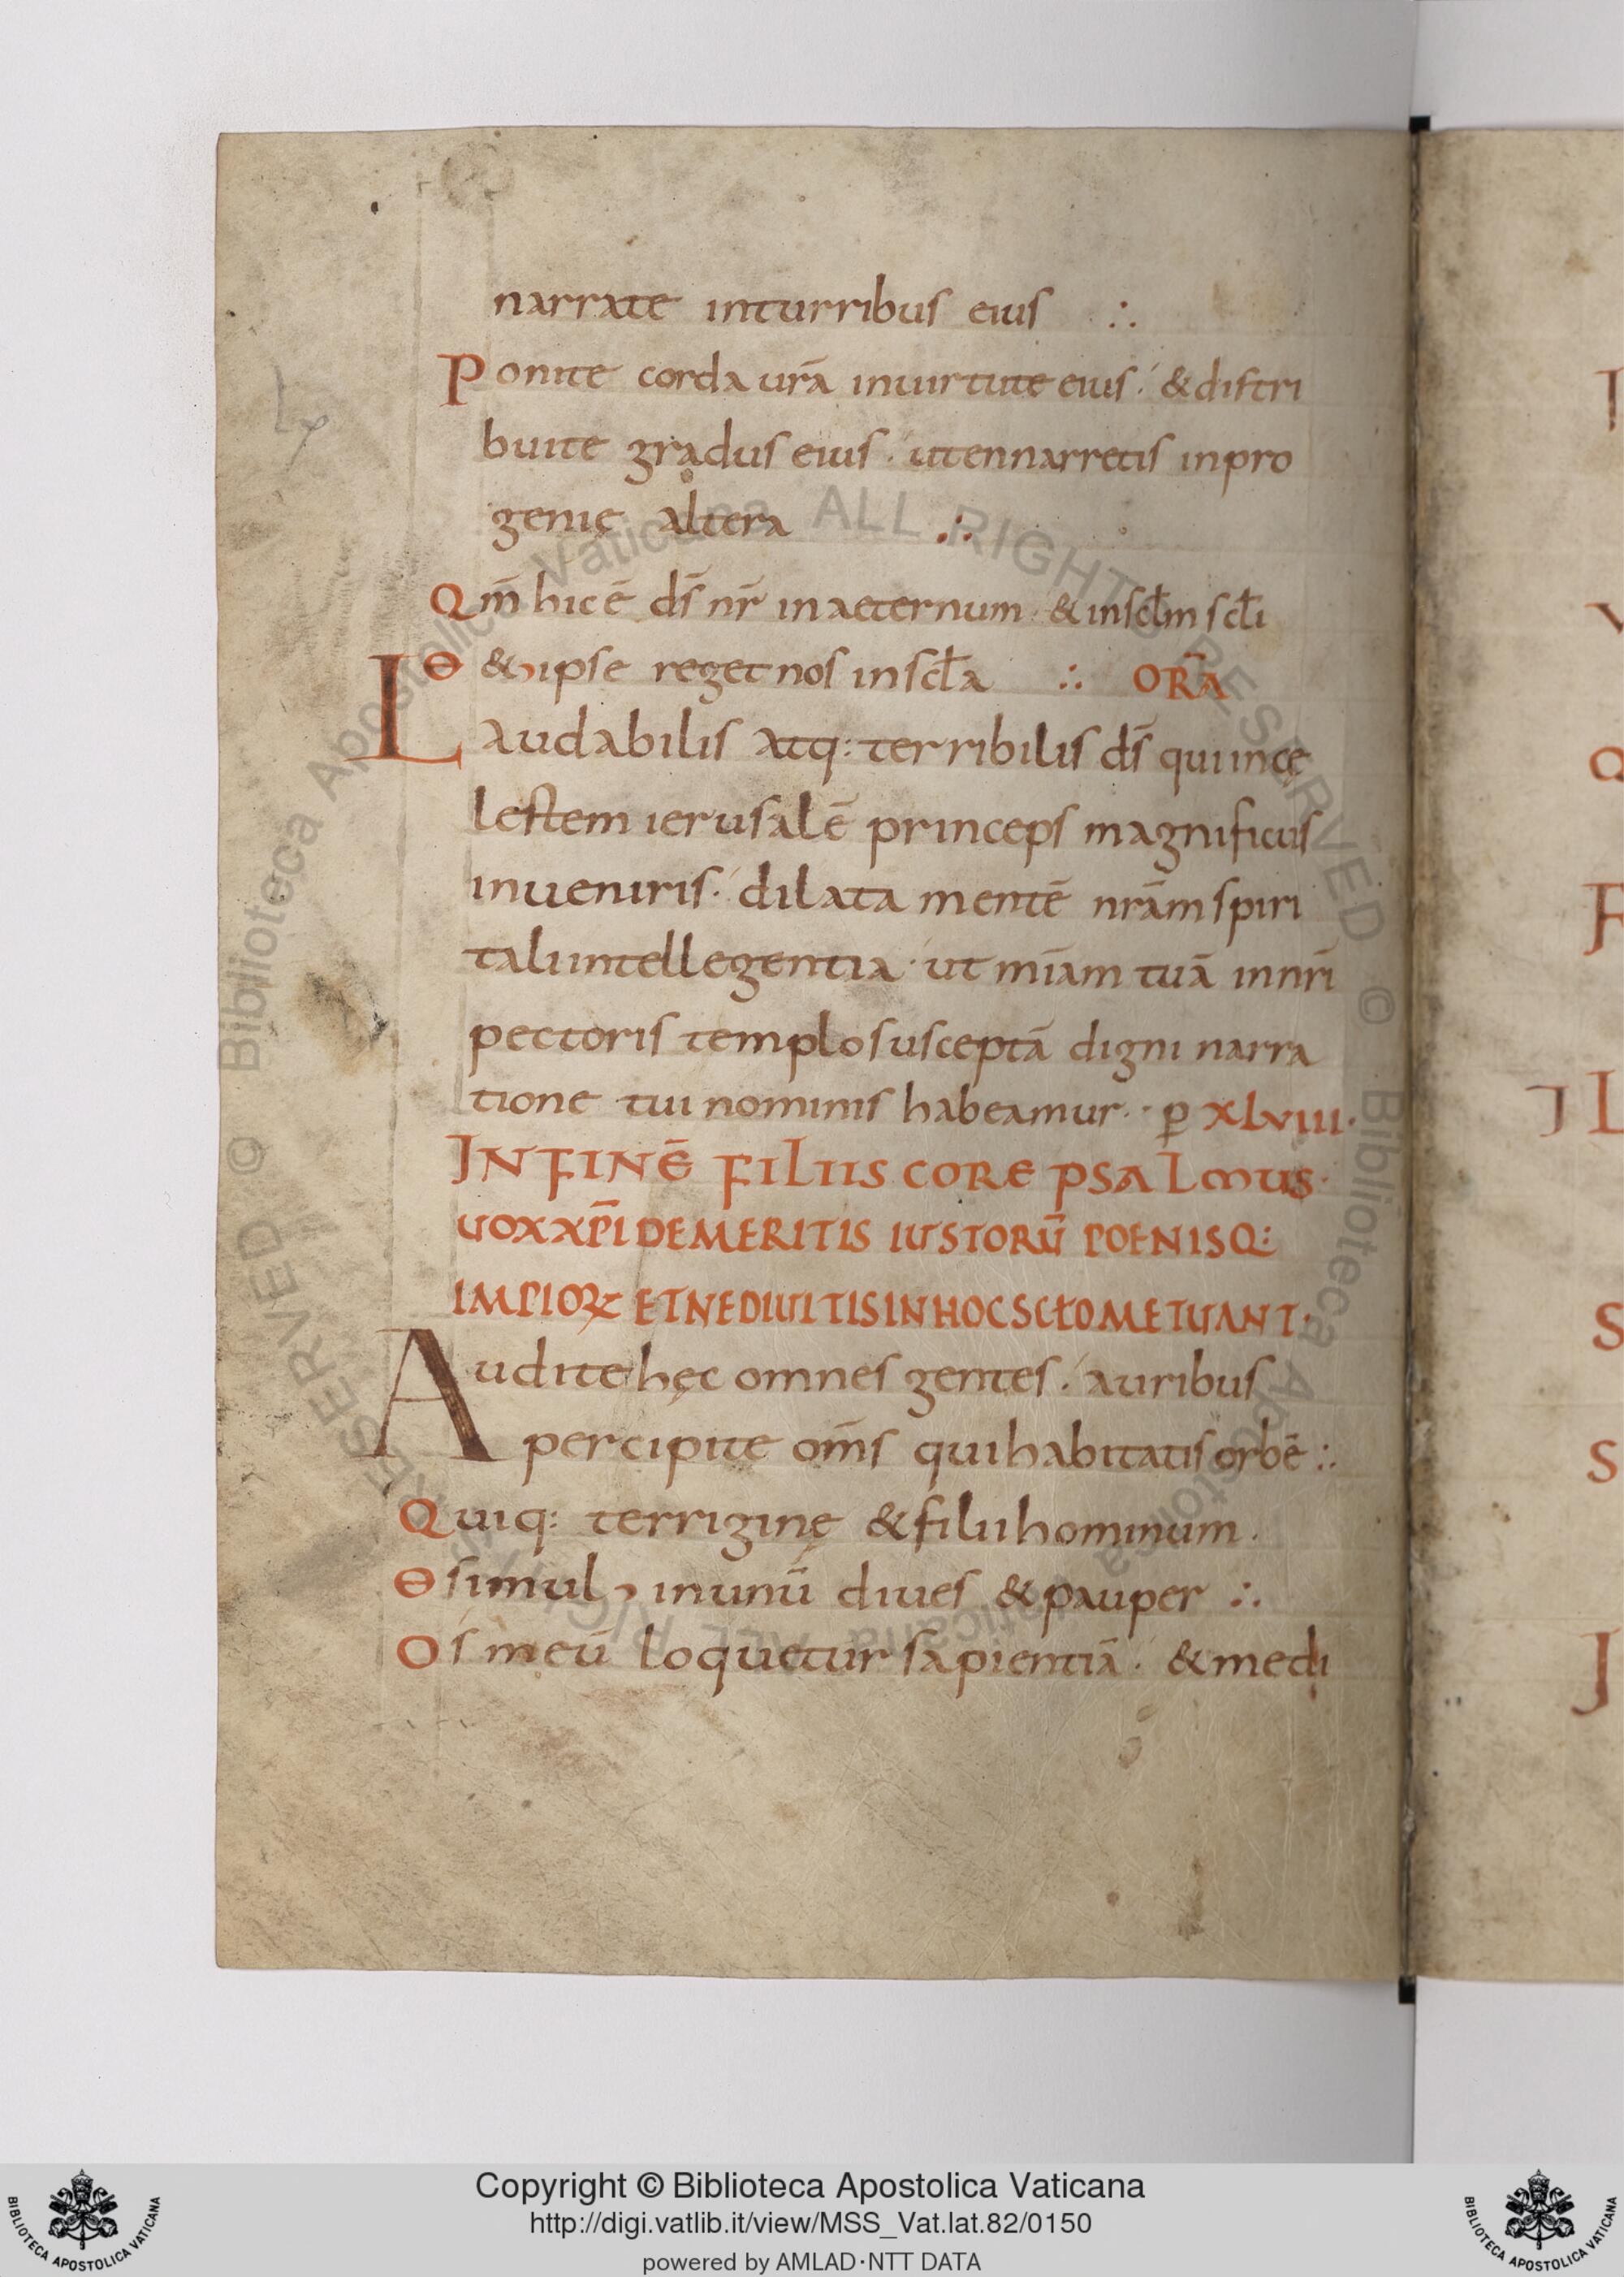 narrate inturribus eius ∴
Ponite corda urā inuirtute eius · & distri
buite gradus eius · utennarretis inpro
genie altera ∴
Qm̄ hic ē ds̄ nr̄ in aeternum · & insclm̄ scli
ϴ & ipse reget nos in scła ∴ ORA
Laudabilis atq: terribilis ds̄ qui ince
lestem ierusalē princeps magnificus
inueniris · dilata mentē nrām spiri
tali intellegentia · ut mīam tuā in nrī
pectoris templo susceptā digni narra
tione tui nominis habeamur · p̱ XLVIII·
IN FINĒ FILIIS CORE PSALMUS·
UOX XP̄I DE MERITIS IUSTORŪ POENISQ:
IMPIOꝜ ET NE DIUITIS IN HOC SCŁO METUANT·
Audite hęc omnes gentes · auribus
percipite om̄s qui habitatis orbē :·
Quiq: terriginę & filii hominum ·
ϴ simul, in unū diues & pauper ∴
Os meū loquetur sapientiā · & medi
© Biblioteca Apostolica Vaticana ALL RIGHTS RESERVED © Biblioteca Apostolica Vaticana ALL RIGHTS RESERVED
Copyright © Biblioteca Apostolica Vaticana
http://digi.vatlib.it/view/MSS_Vat.lat.82/0150
powered by AMLAD·NTT DATA
BIBLIOTECA APOSTOLICA VATICANA
BIBLIOTECA APOSTOLICA VATICANA